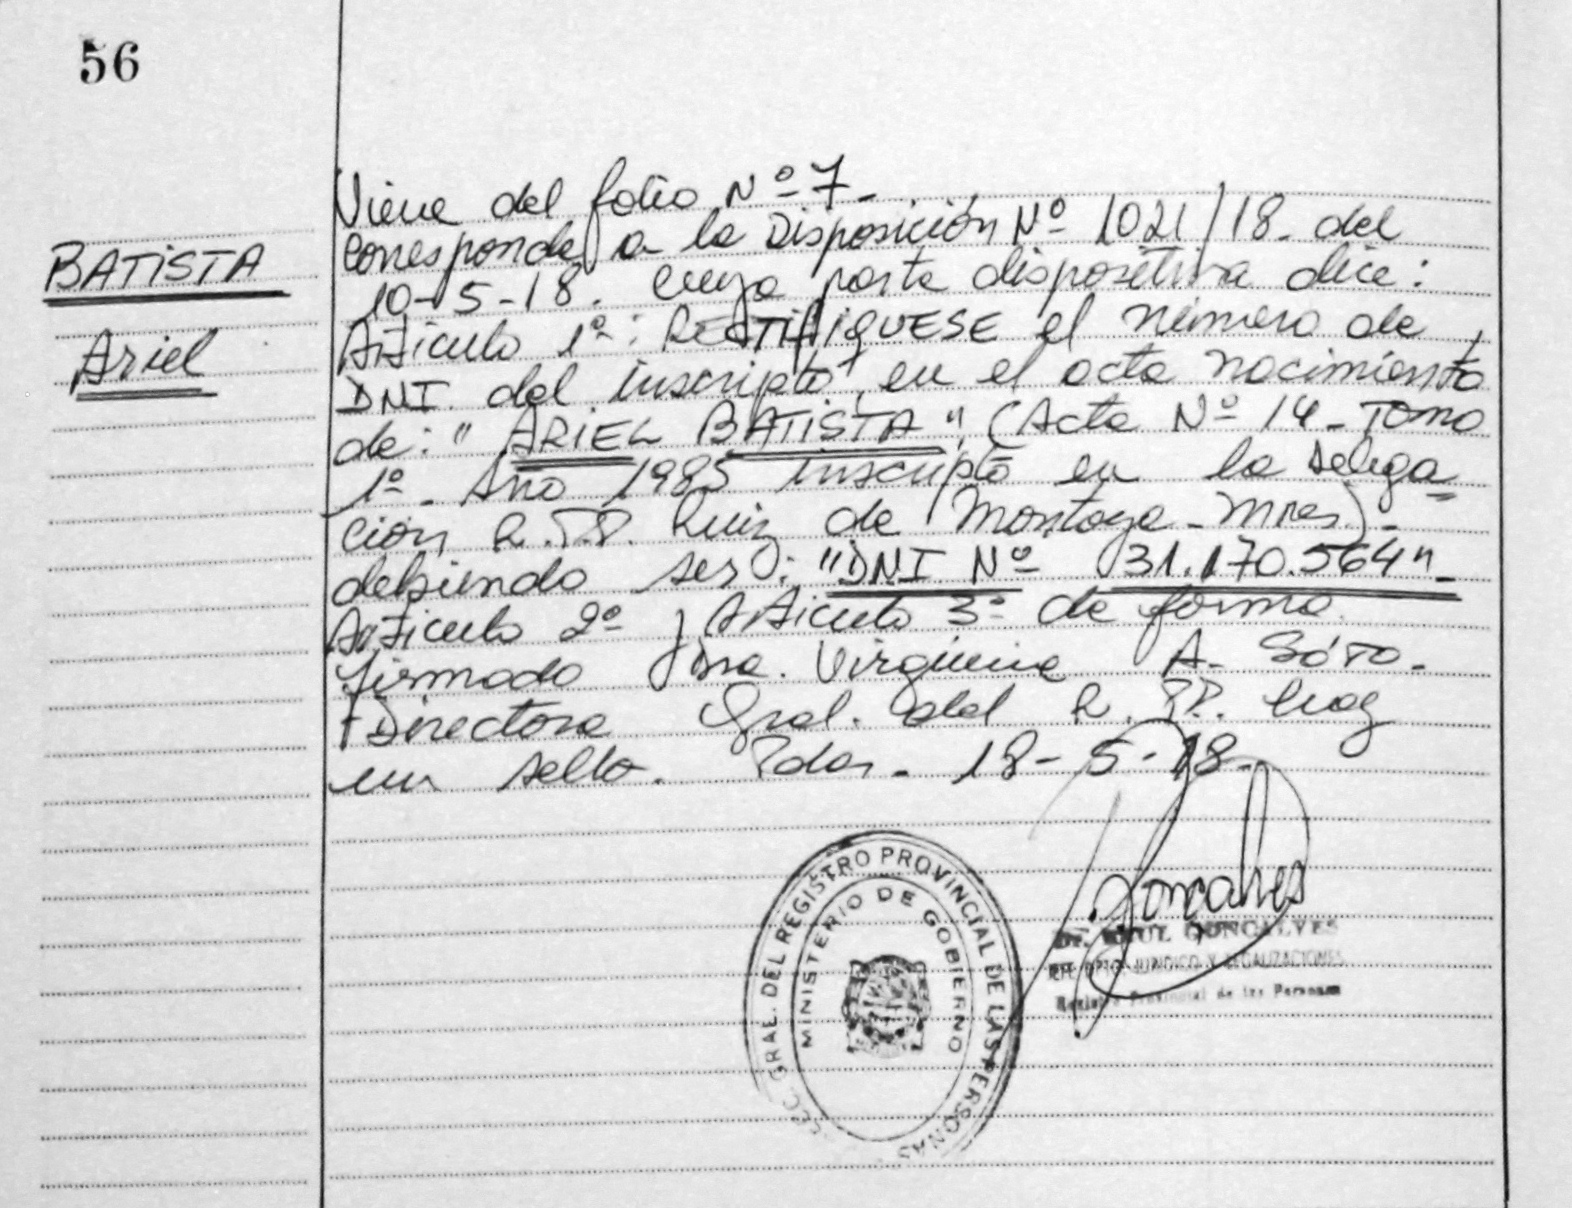 56
BATISTA
Ariel
Viene del folio Nº 7-
corresponde a la Disposición Nº 1021/18. del
10-5-18. cuya parte dispositiva dice:
Artículo 1º: RECTIFIQUESE el número de
DNI. del inscripto, en el acta nacimiento
de: "ARIEL BATISTA", (Acta Nº 14- Tomo
1º- Año 1985 inscripto en la Delega=
ción R.P.P. Ruiz de Montoya-Mnes)-
debiendo ser: "DNI Nº 31.170.564"-
Artículo 2º y Artículo 3º de forma.
firmado Dra. Virginia A. Sóto.
Directora Gral. del R.P.P. hay
un sello. Pdas- 18-5-18-
DIRECC. GRAL. DEL REGISTRO PROVINCIAL DE LAS PERSONAS
MINISTERIO DE GOBIERNO
Goncalves
Dr. RAUL GONCALVES
DPTO. JURIDICO Y LEGALIZACIONES
Registro Provincial de las Personas